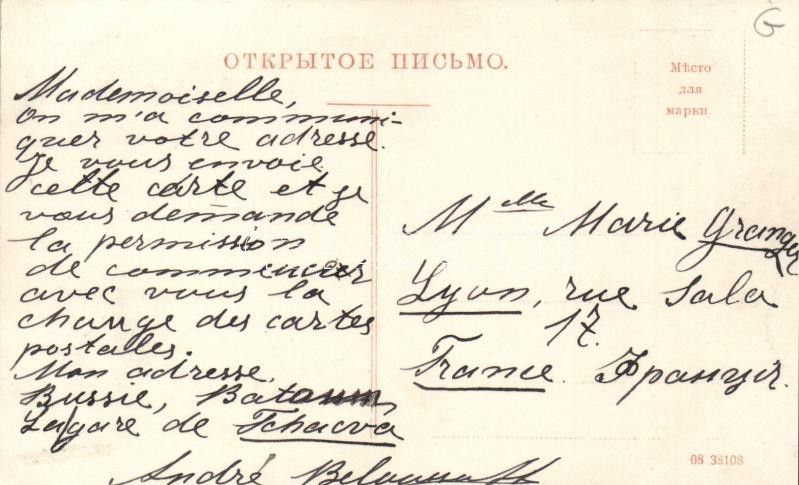 ОТКРЫТОЕ ПИСЬМО.
Мѣсто
для
марки.
Mademoiselle,
on m'a communi-
quer votre adresse.
Je vous envoie
cette carte et je
vous demande
la permission
de commencer
avec vous la
change des cartes
postales.
Mon adresse,
Russie, Batoum,
La gare de Tchacva
André
Mlle Marie Granger
Lyon, rue Sala
17.
France. Франція.
08 38108